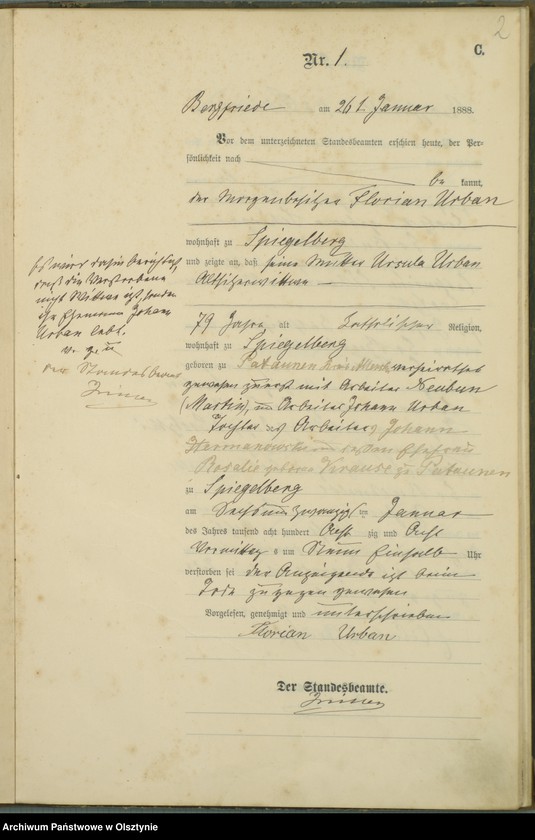 2
C.
Nr. 1.
Bergfriede am 26t. Januar 1888.
Vor dem unterzeichneten Standesbeamten erschien heute, der Per-
sönlichkeit nach
be kannt,
der Morgenbesitzer Florian Urban
wohnhaft zu Spiegelberg
und zeigte an, daß seine Mutter Ursula Urban
Altsitzerwittwe
79 Jahre alt katholischer Religion,
wohnhaft zu Spiegelberg
geboren zu Pataunen verheirathet
gewesen zuerst mit Arbeiter
(Martin), Arbeiter Johann Urban
Tochter des Arbeiters Johann
Hermanowski und dessen Ehefrau
Rosalie geborne Krause zu Pataunen
zu Spiegelberg
am Sechsundzwanzigsten Januar
des Jahres tausend acht hundert Acht zig und Acht
Vormittag s um Uhr
verstorben sei der Anzeigende ist beim
Tode zugegen gewesen
Vorgelesen, genehmigt und unterschrieben
Florian Urban
Der Standesbeamte.
Es wird dahin berichtigt,
daß die Verstorbene
nicht Wittwe ist, sondern
ihr Ehemann Johann
Urban lebt.
v. g. u
der Standesbeamte
Archiwum Państwowe w Olsztynie